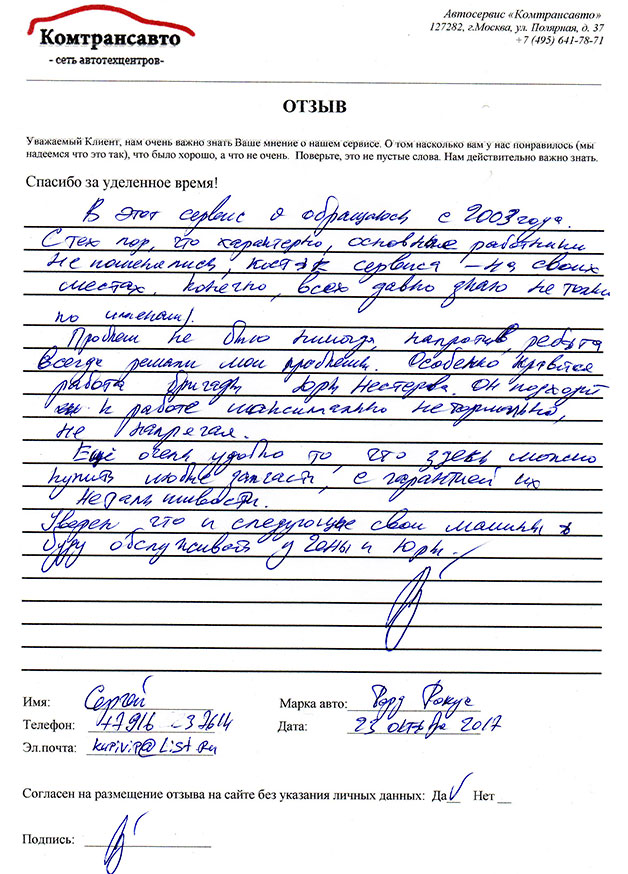 Комтрансавто
- сеть автотехцентров-
Автосервис «Комтрансавто»
127282, г.Москва, ул. Полярная, д. 37
+7 (495) 641-78-71
ОТЗЫВ
Уважаемый Клиент, нам очень важно знать Ваше мнение о нашем сервисе. О том насколько вам у нас понравилось (мы
надеемся что это так), что было хорошо, а что не очень. Поверьте, это не пустые слова. Нам действительно важно знать.
Спасибо за уделенное время!
В этот сервис я обращаюсь с 2003 года.
С тех пор, что характерно, основные работники
не поменялись, костяк сервиса – на своих
местах. Конечно, всех давно знаю не только
по именам!
Проблем не было никогда, напротив, ребята
всегда решали мои проблемы. Особенно нравится
работа бригады Юры Нестерова. Он подходит
к работе максимально
не напрягая.
Ещё очень удобно то, что здесь можно
купить любые запчасти, с гарантией их
Уверен что и следующие свои машины
буду обслуживать у Гены и Юры.
Имя: Сергей
Марка авто: Форд Фокус
Телефон: +7916 -37614
Дата: 23 октября 2017
Эл.почта: kurivip@list.ru
Согласен на размещение отзыва на сайте без указания личных данных: Да V Нет
Подпись: